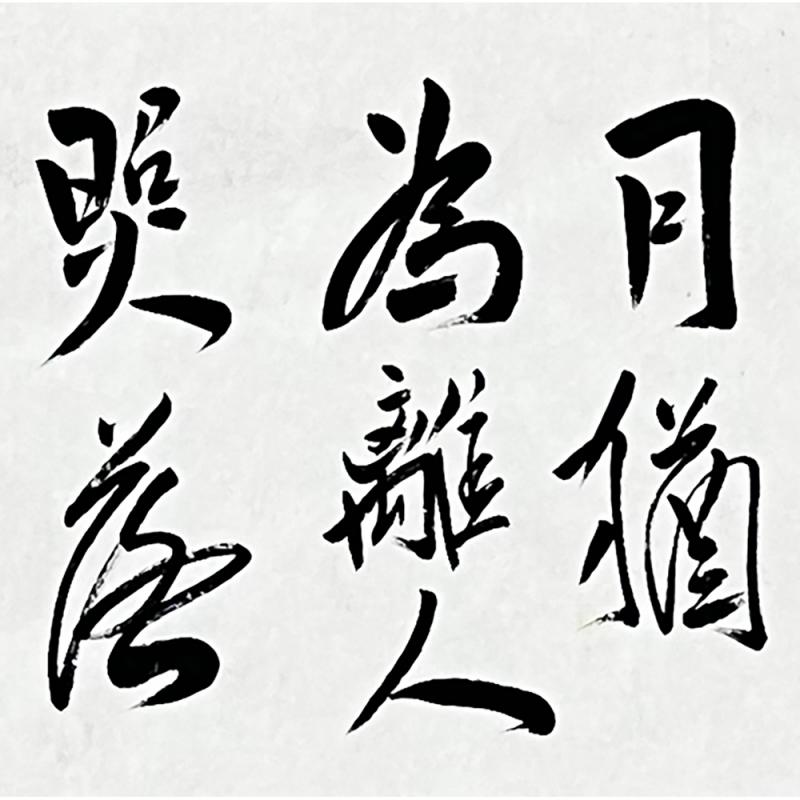 月猶
為離人
照落